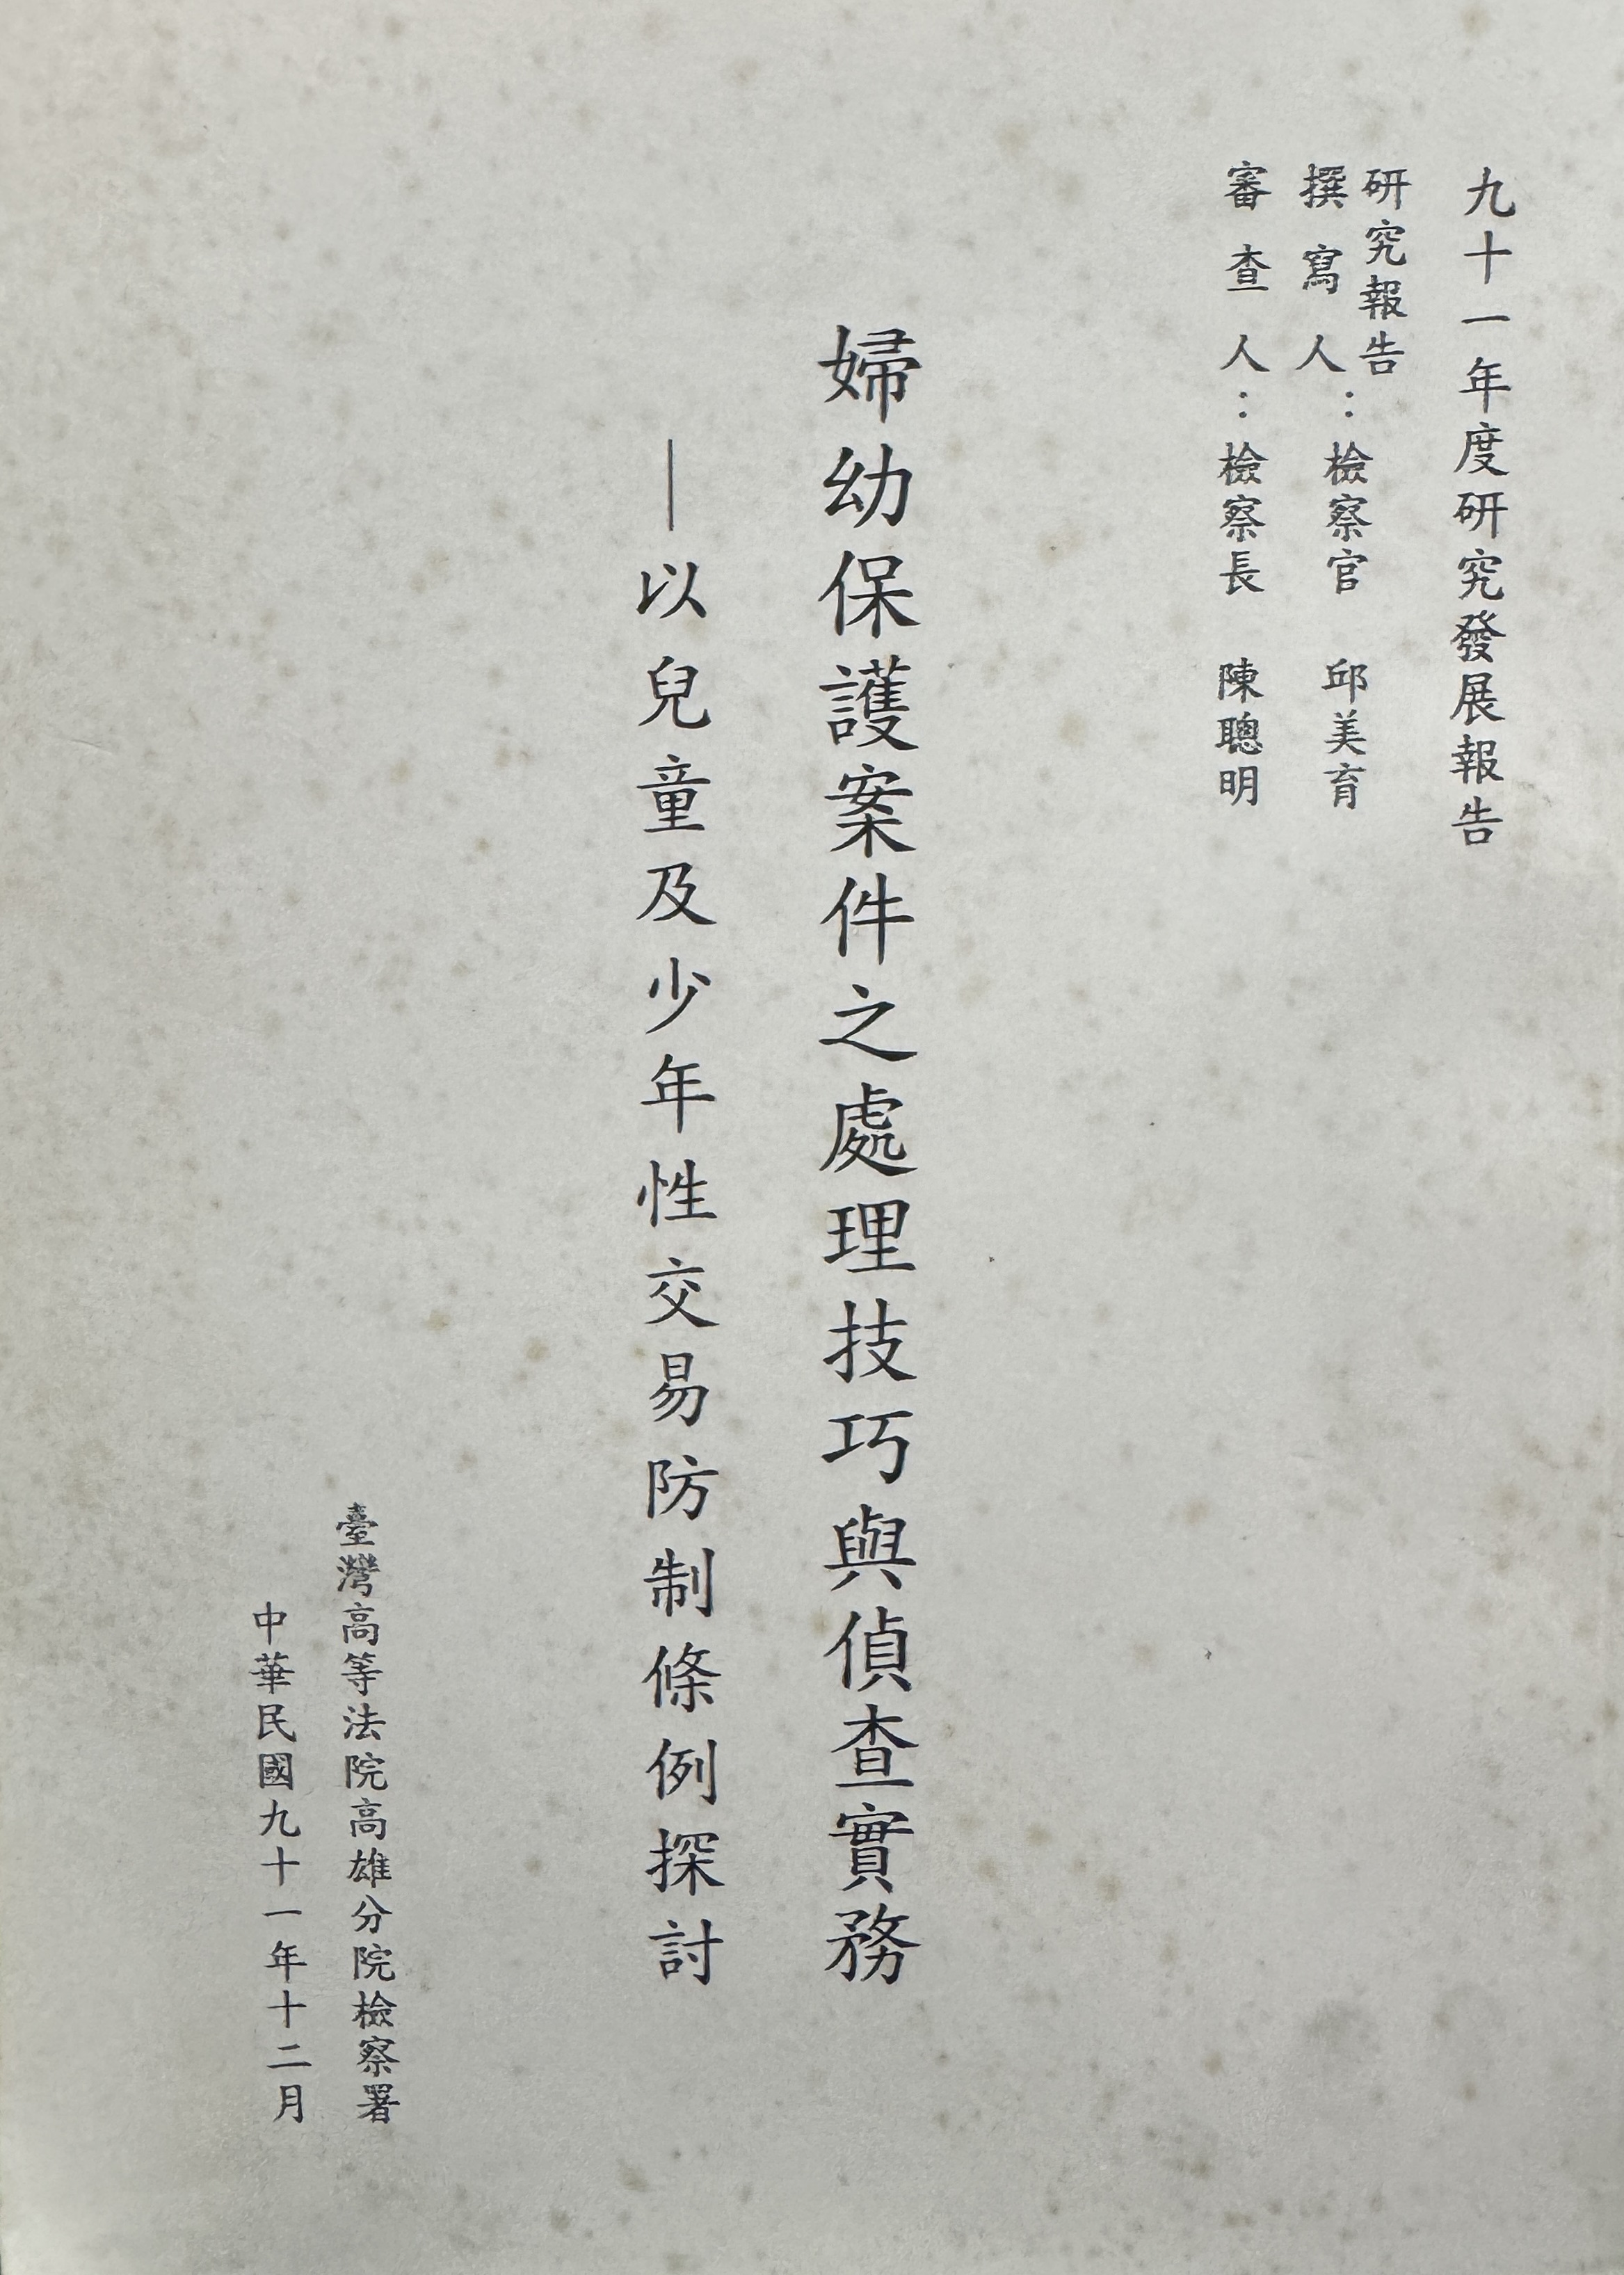 九十一年度研究發展報告
研究報告
撰寫人：檢察官　邱美育
審查人：檢察長　陳聰明
婦幼保護案件之處理技巧與偵查實務
—以兒童及少年性交易防制條例探討
臺灣高等法院高雄分院檢察署
中華民國九十一年十二月